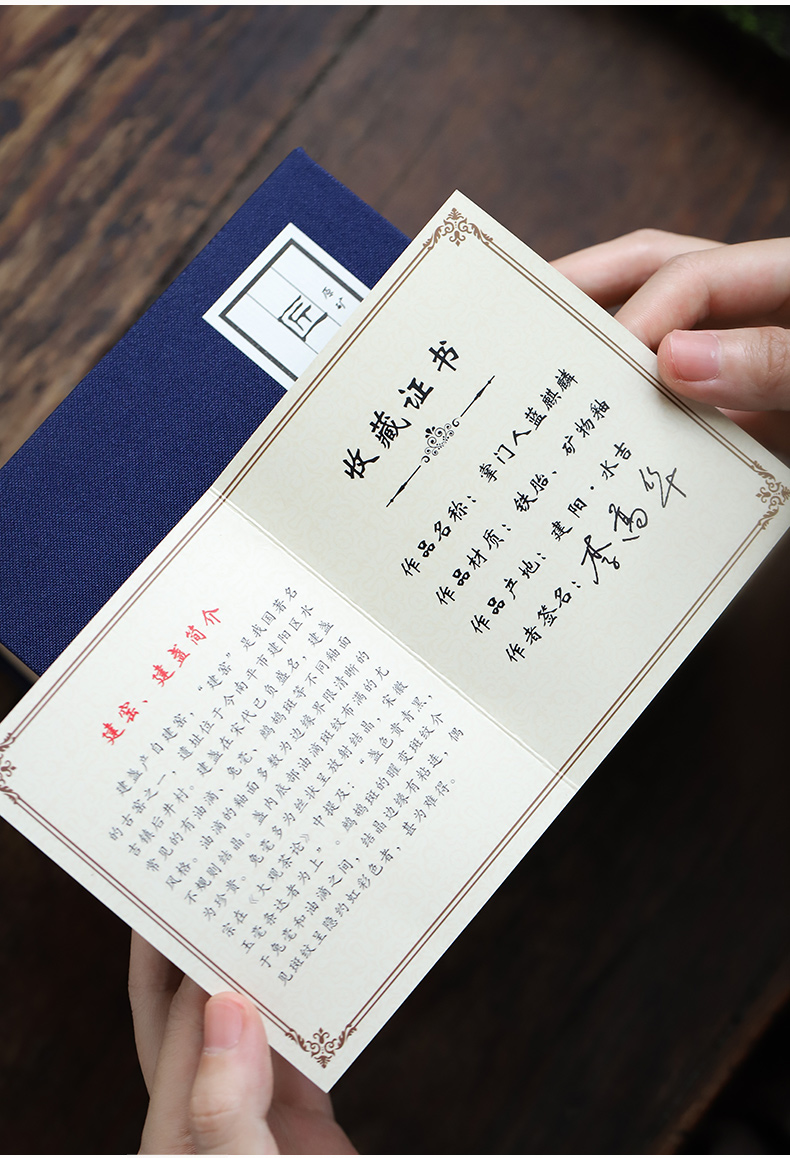 匠
原矿
收藏证书
作品名称：掌门人蓝麒麟
作品材质：铁胎、矿物釉
作品产地：建阳·水吉
作者签名：李高华
建窑、建盏简介
建盏产自建窑，“建窑”是我国著名
的古窑之一，遗址位于今南平市建阳区水
吉镇后井村。建盏在宋代已负盛名，建盏
常见的有油滴、兔毫、鹧鸪斑等不同釉面
风格。油滴的釉面多数为边缘界限清晰的
不规则结晶。盏内底部油滴斑纹布满的尤
为珍贵。兔毫多为丝状呈放射结晶，宋徽
宗在《大观茶论》中提及：“盏色贵青黑，
玉毫条达者为上”。鹧鸪斑的曜变斑纹介
于兔毫和油滴之间，结晶边缘有粘连，偶
见斑纹呈隐约虹彩色者，甚为难得。